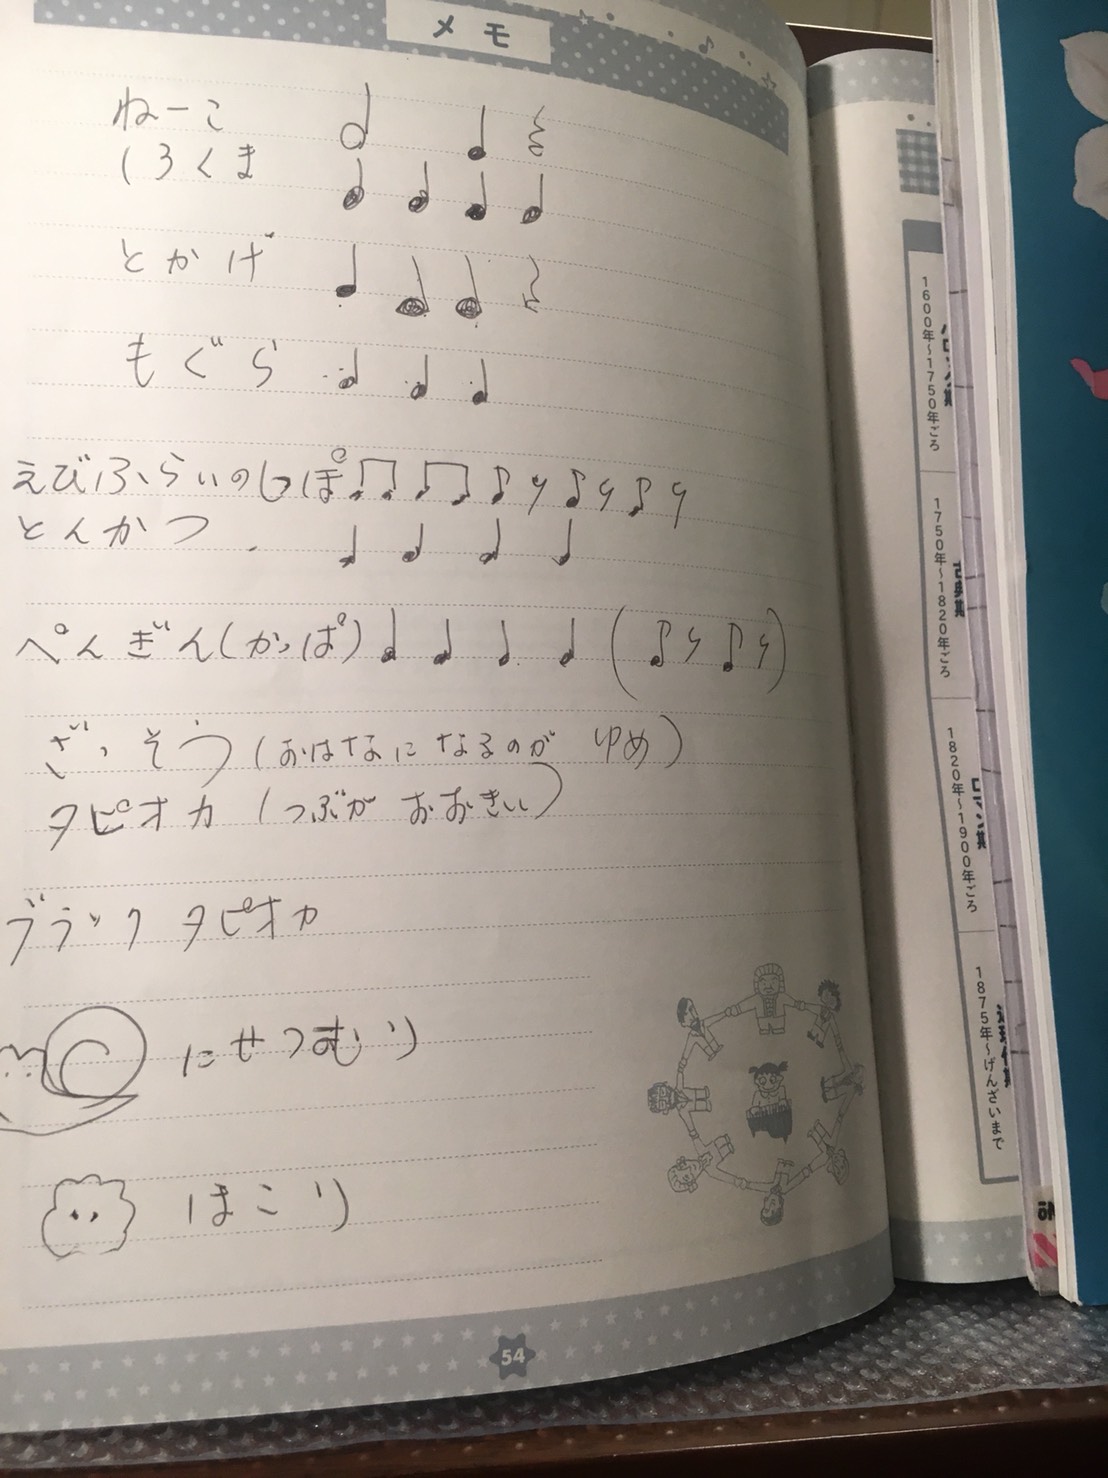 メモ
ねーこ
しろくま
とかげ
もぐら
えびふらいのしっぽ
とんかつ
ぺんぎん(かっぱ)
ざっそう(おはなになるのが ゆめ)
タピオカ(つぶが おおきい)
ブラックタピオカ
にせつむり
ほこり
54
1600年〜1750年ごろ
古典期
1750年〜1820年ごろ
1820年〜1900年ごろ
1875年〜げんざいまで